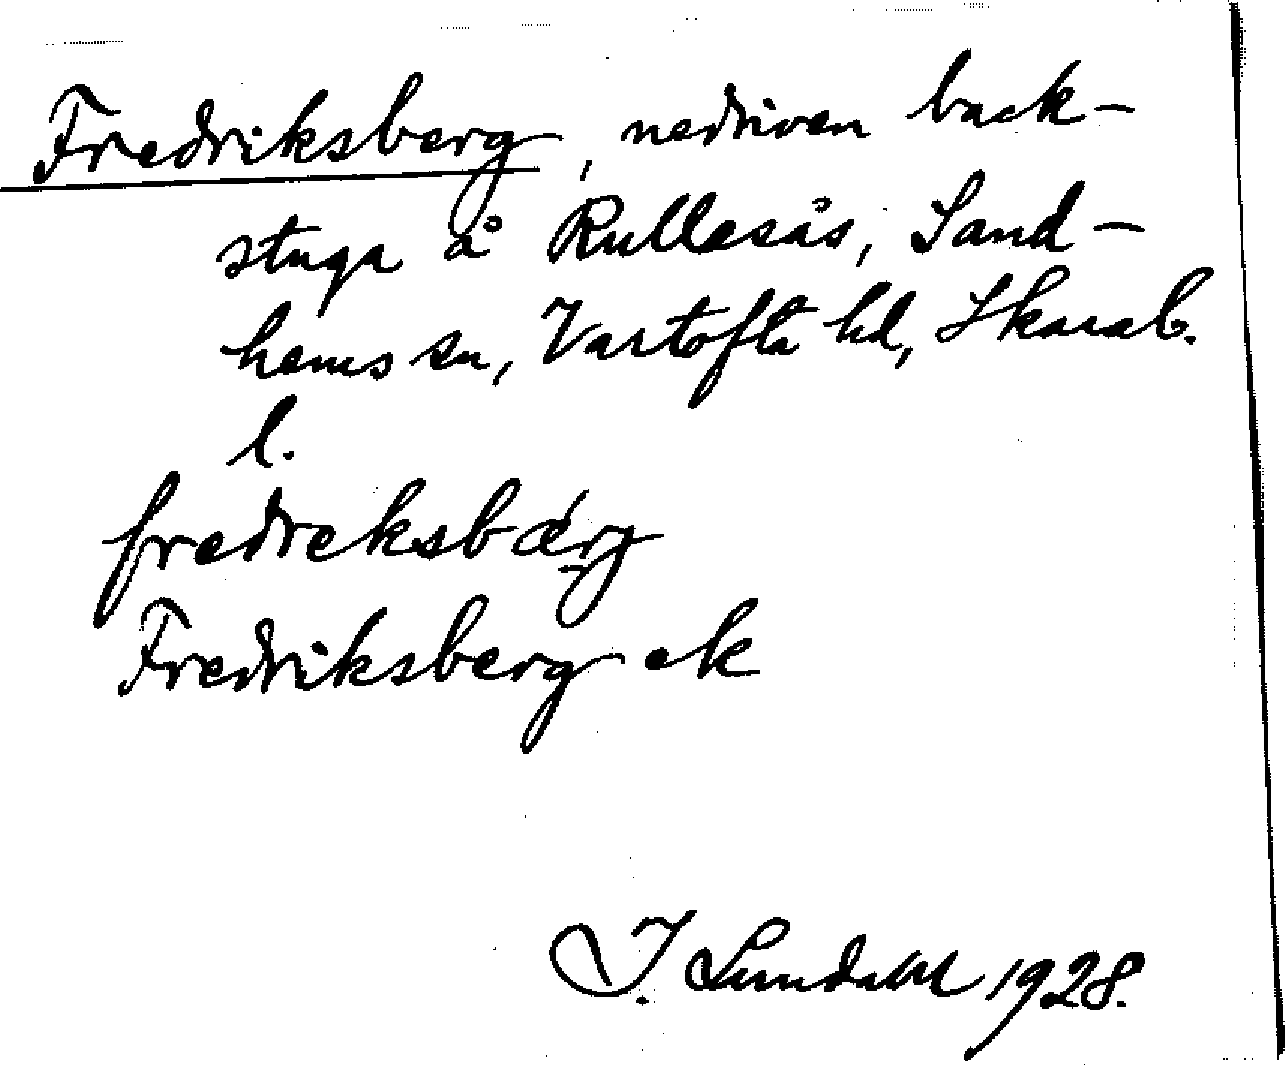 Fredriksberg, nedriven back-
stuga å Rullesås, Sand-
hems sn, Vartofta hd, Skarab.
l.
fredreksbærj
Fredriksberg ek
I. Lundahl 1928.